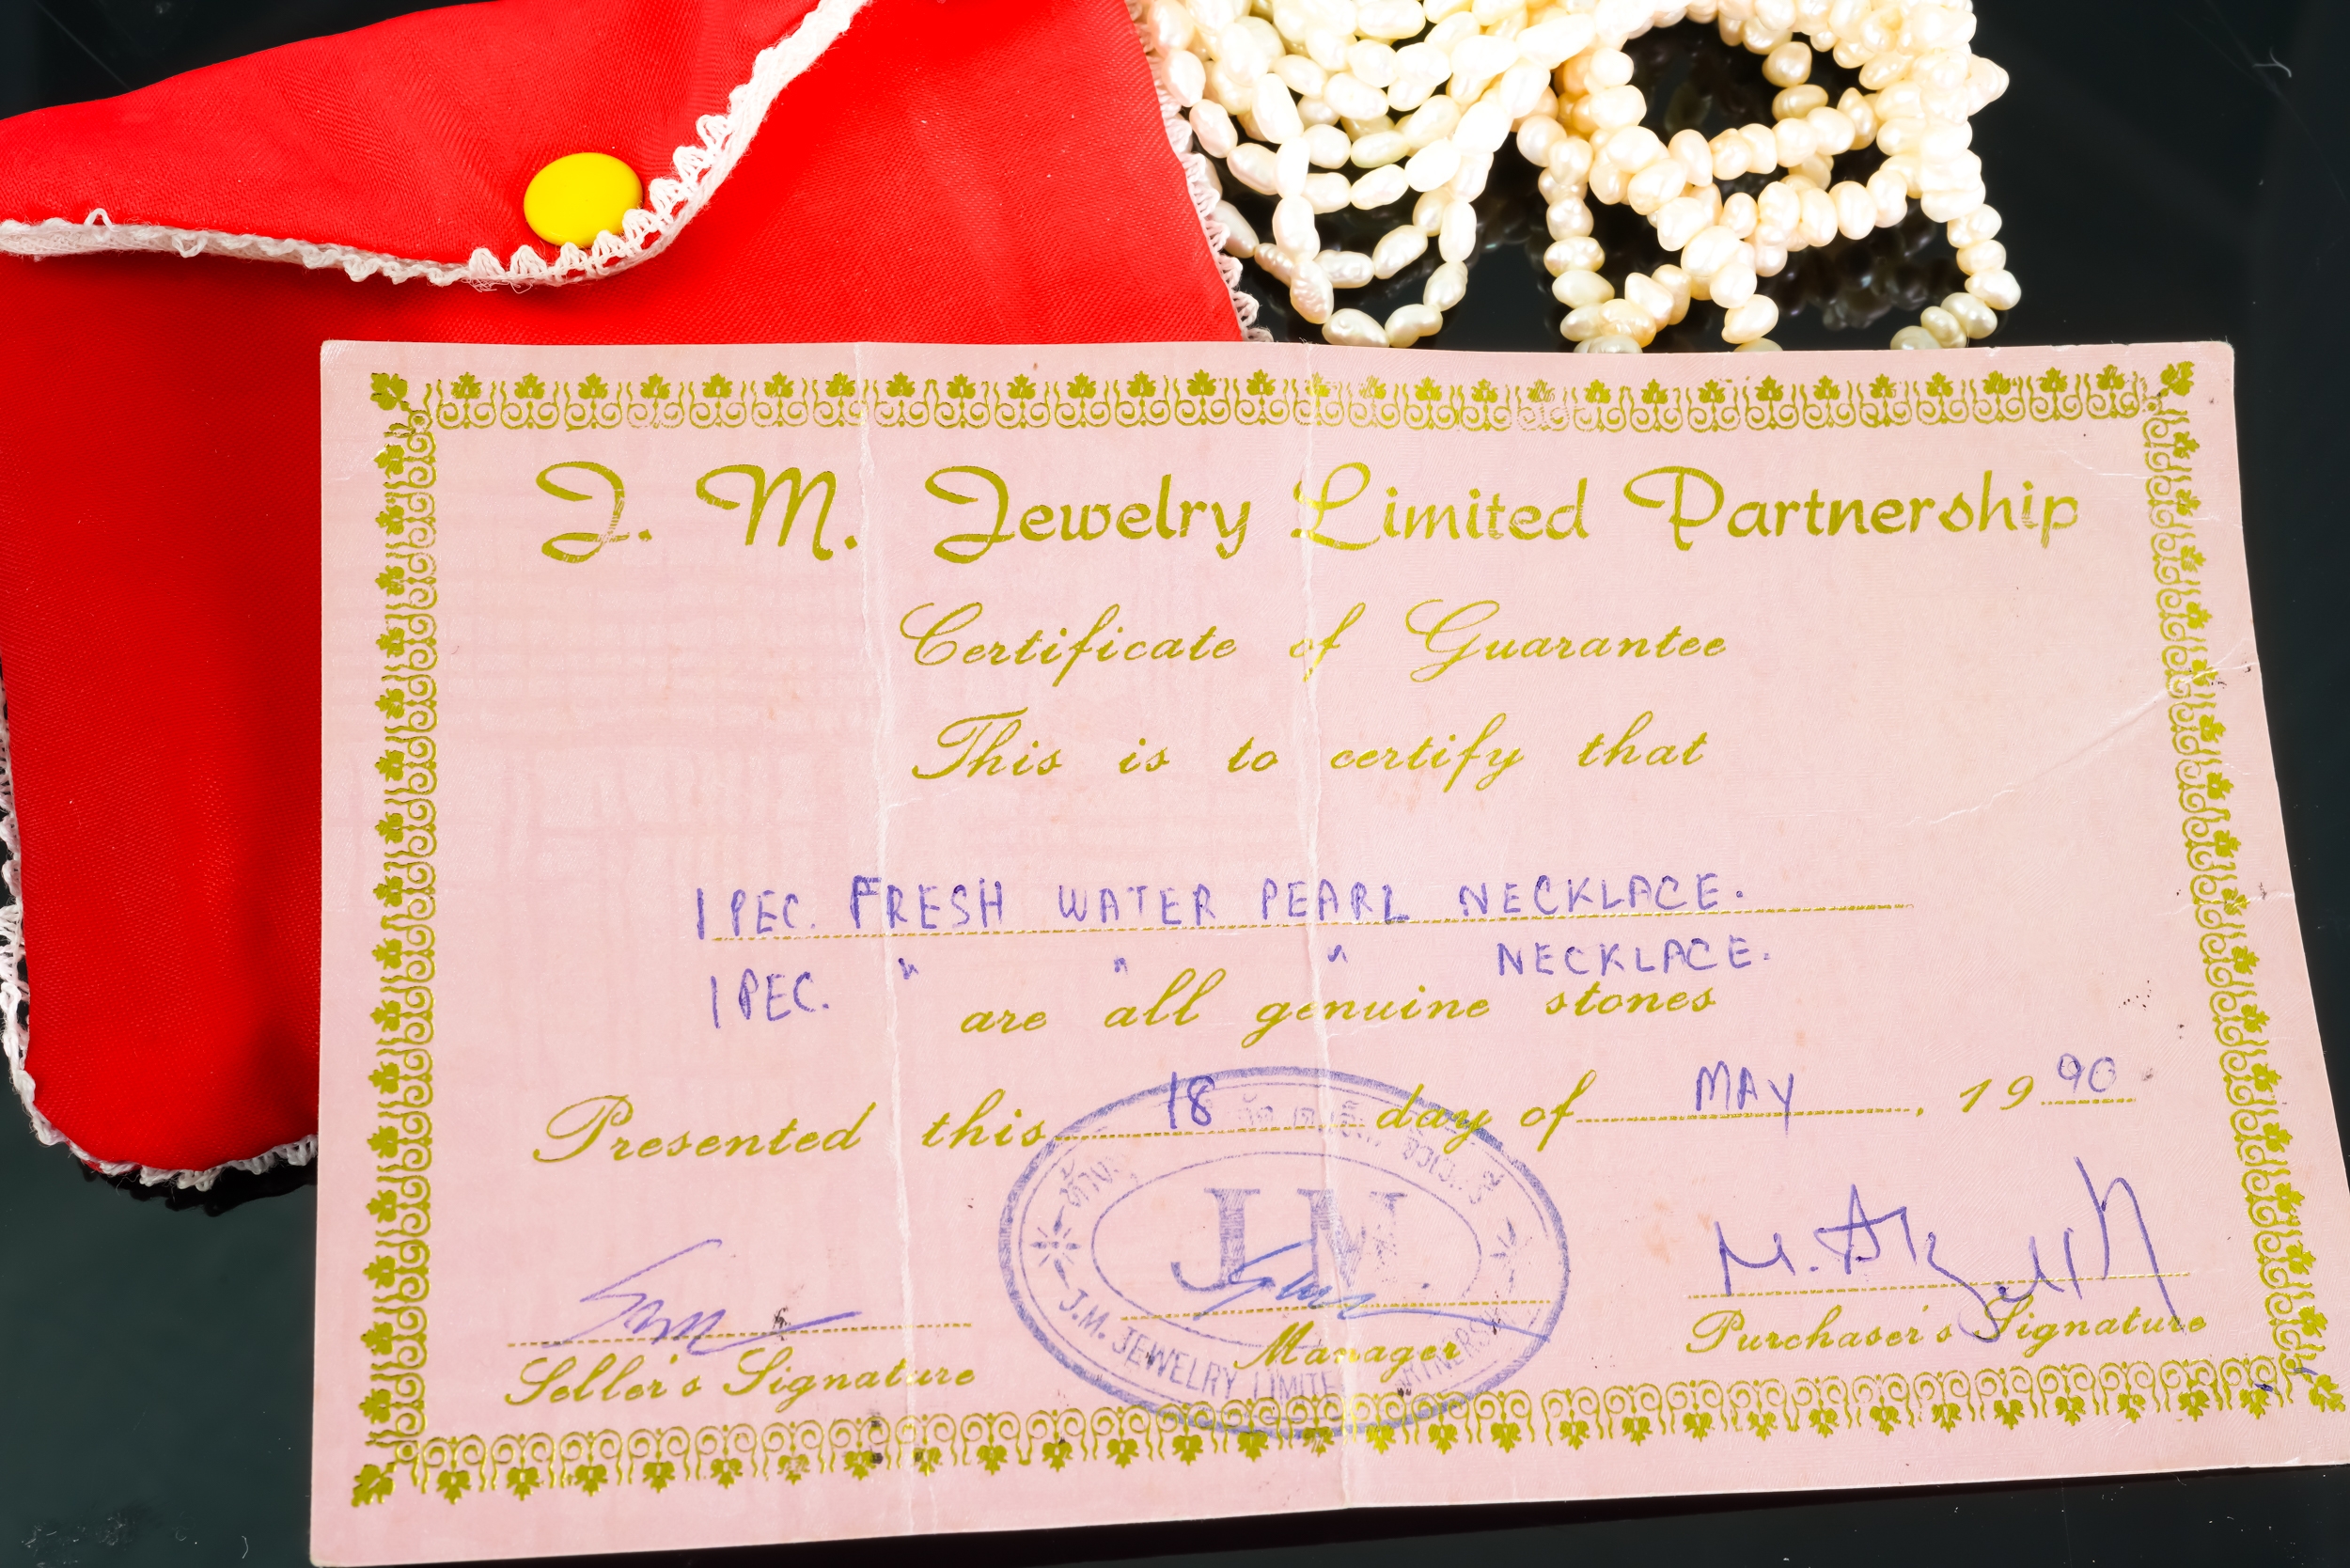 J. M. Jewelry Limited Partnership
Certificate of Guarantee
This is to certify that
1 PEC. FRESH WATER PEARL NECKLACE.
1 PEC. " " " NECKLACE.
are all genuine stones
Presented this 18 day of MAY, 19 90
JM
J.M. JEWELRY LIMITED PARTNERSHIP
Seller's Signature
Manager
Purchaser's Signature